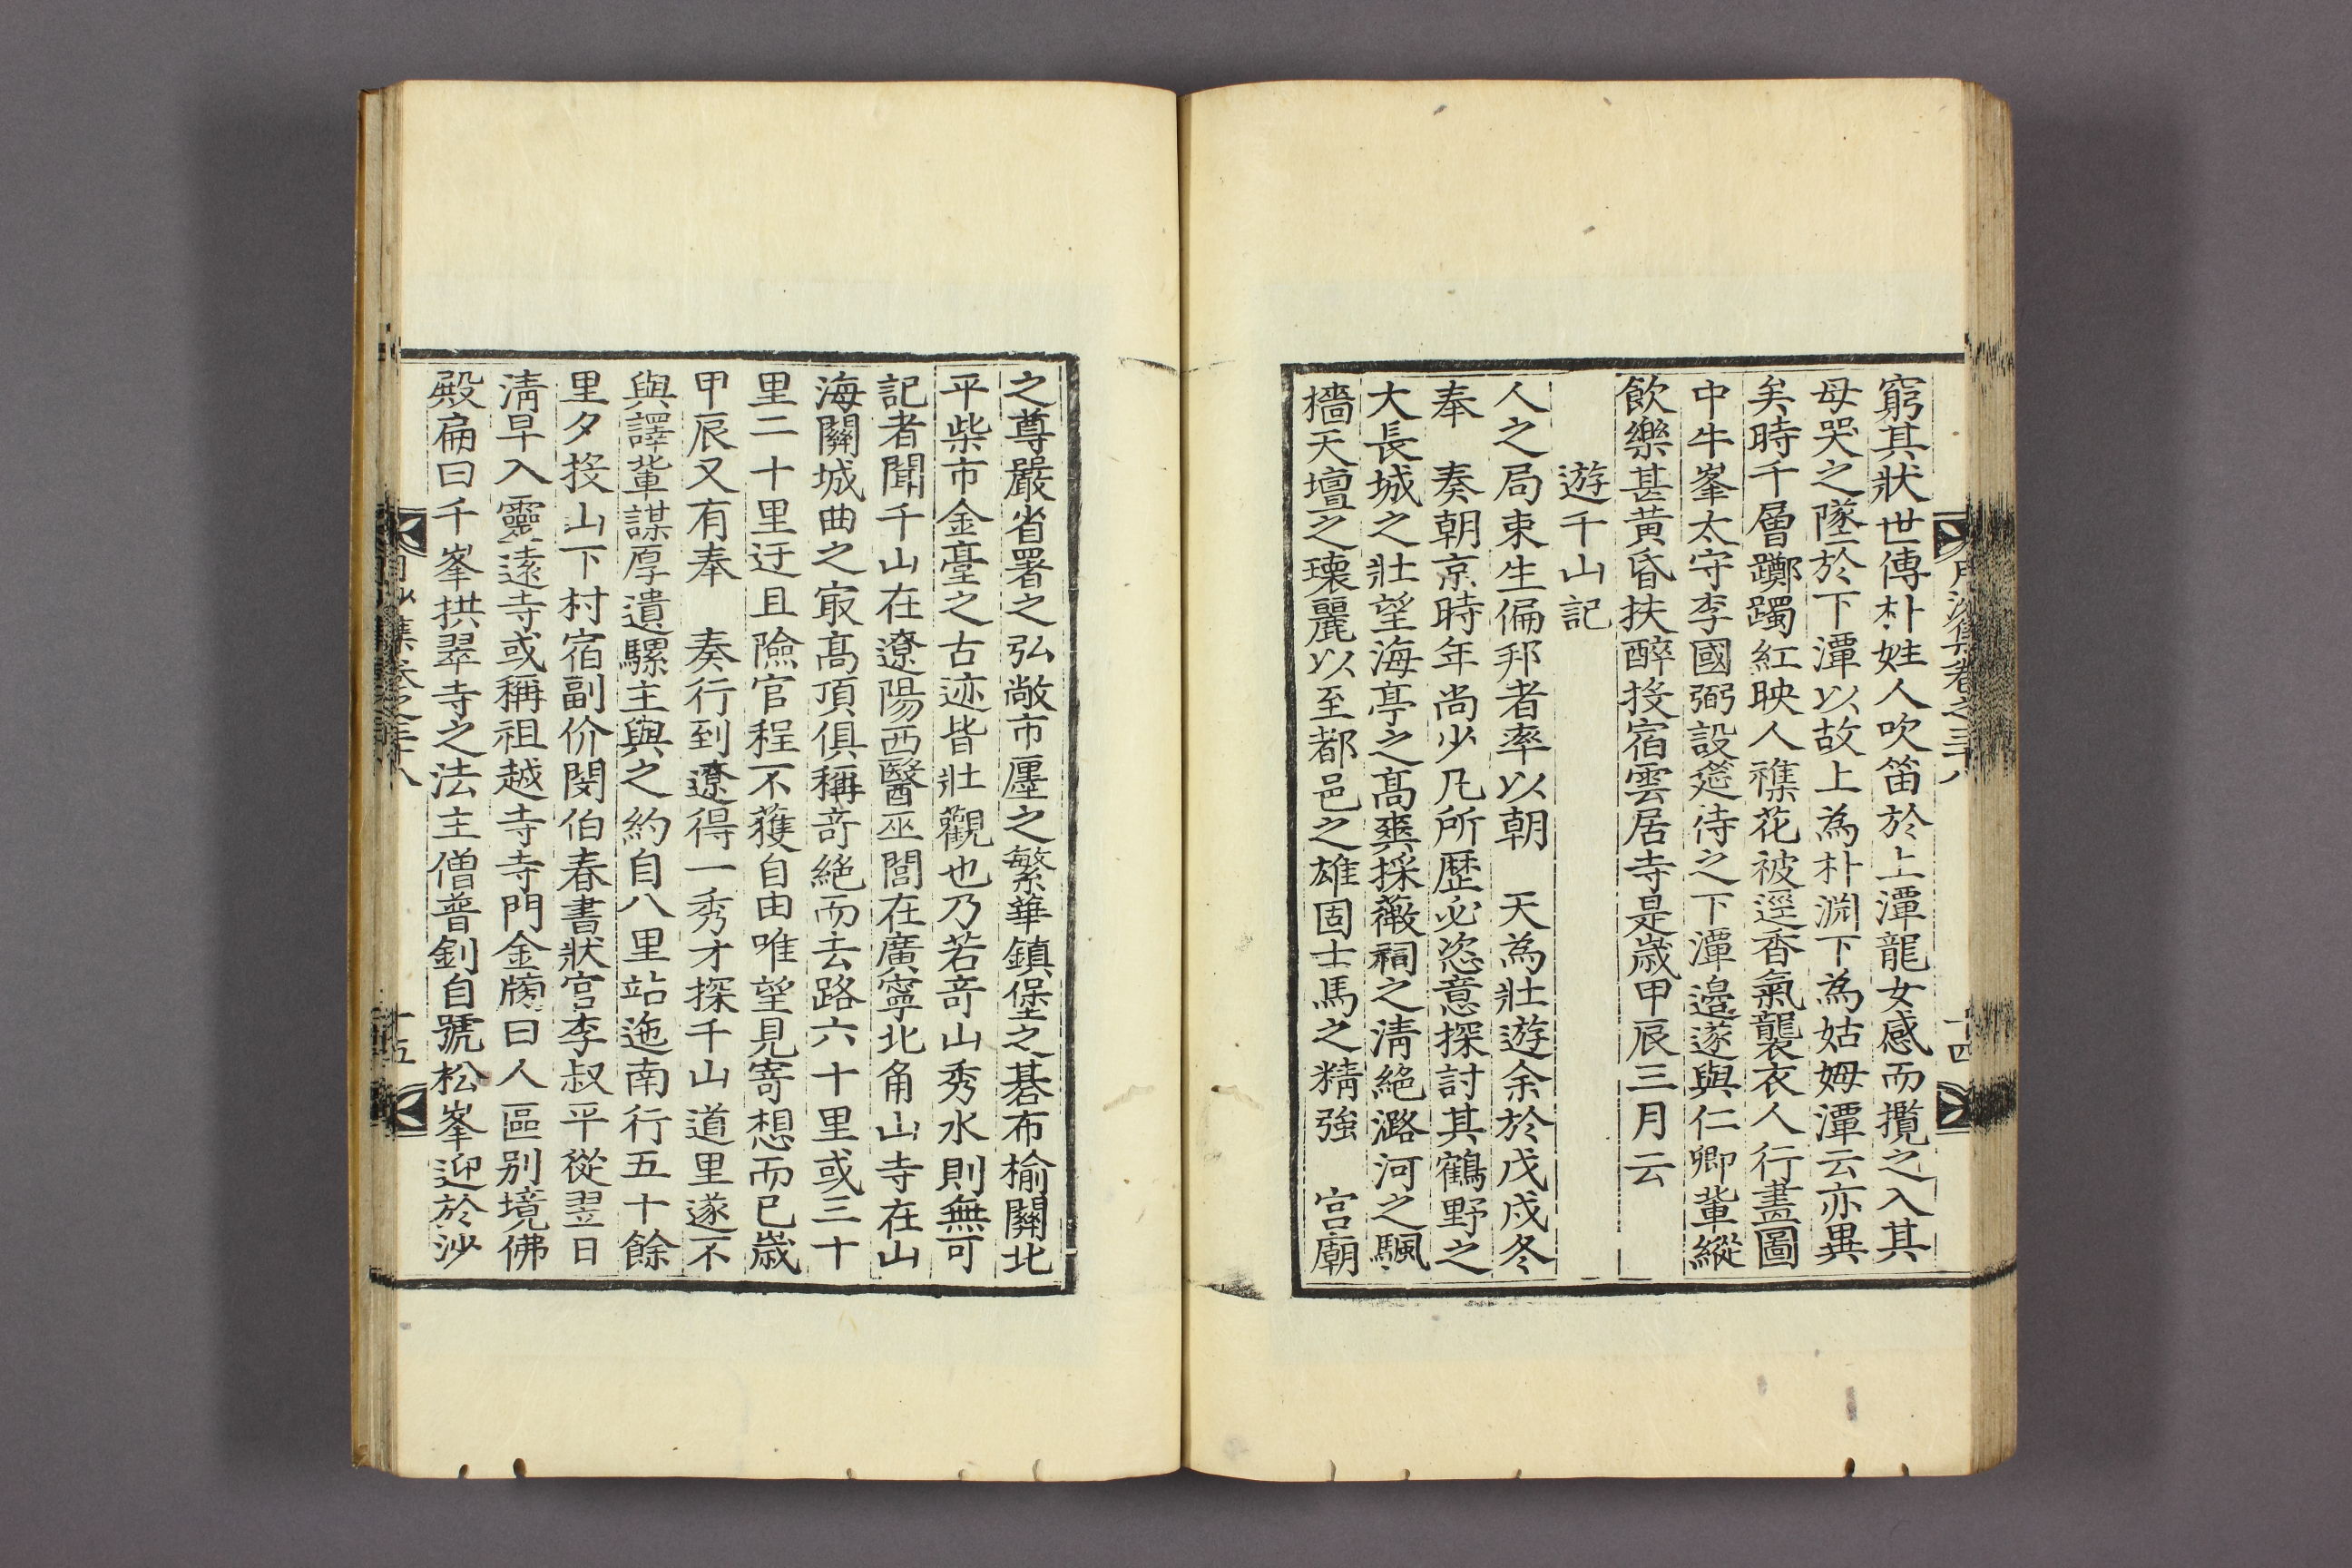 月沙集卷之三十八
十四
窮其狀世傳朴姓人吹笛於上潭龍女感而攬之入其
母哭之墜於下潭以故上為朴淵下為姑姆潭云亦異
矣時千層躑躅紅映人襍花被逕香氣襲衣人行畫圖
中牛峯太守李國弼設筵待之下潭邊遂與仁卿輩縱
飲樂甚黃昏扶醉投宿雲居寺是歲甲辰三月云
遊千山記
人之局束生偏邦者率以朝 天為壯遊余於戊戌冬
奉 奏朝京時年尚少凡所歷必恣意探討其鶴野之
大長城之壯望海亭之高爽採薇祠之清絕潞河之颿
檣天壇之瓌麗以至都邑之雄固士馬之精強 宮廟
之尊嚴省署之弘敞市廛之繁華鎮堡之碁布榆關北
平柴市金臺之古迹皆壯觀也乃若竒山秀水則無可
記者聞千山在遼陽西醫巫閭在廣寧北角山寺在山
海關城曲之㝡高頂俱稱竒絕而去路六十里或三十
里二十里迂且險官程不獲自由唯望見寄想而已歲
甲辰又有奉 奏行到遼得一秀才探千山道里遂不
與譯輩謀厚遺騾主與之約自八里站迤南行五十餘
里夕投山下村宿副价閔伯春書狀官李叔平從翌日
淸早入靈遠寺或稱祖越寺寺門金牓曰人區別境佛
殿扁曰千峯拱翠寺之法主僧普釗自號松峯迎於沙
月沙集卷之三十八
十五